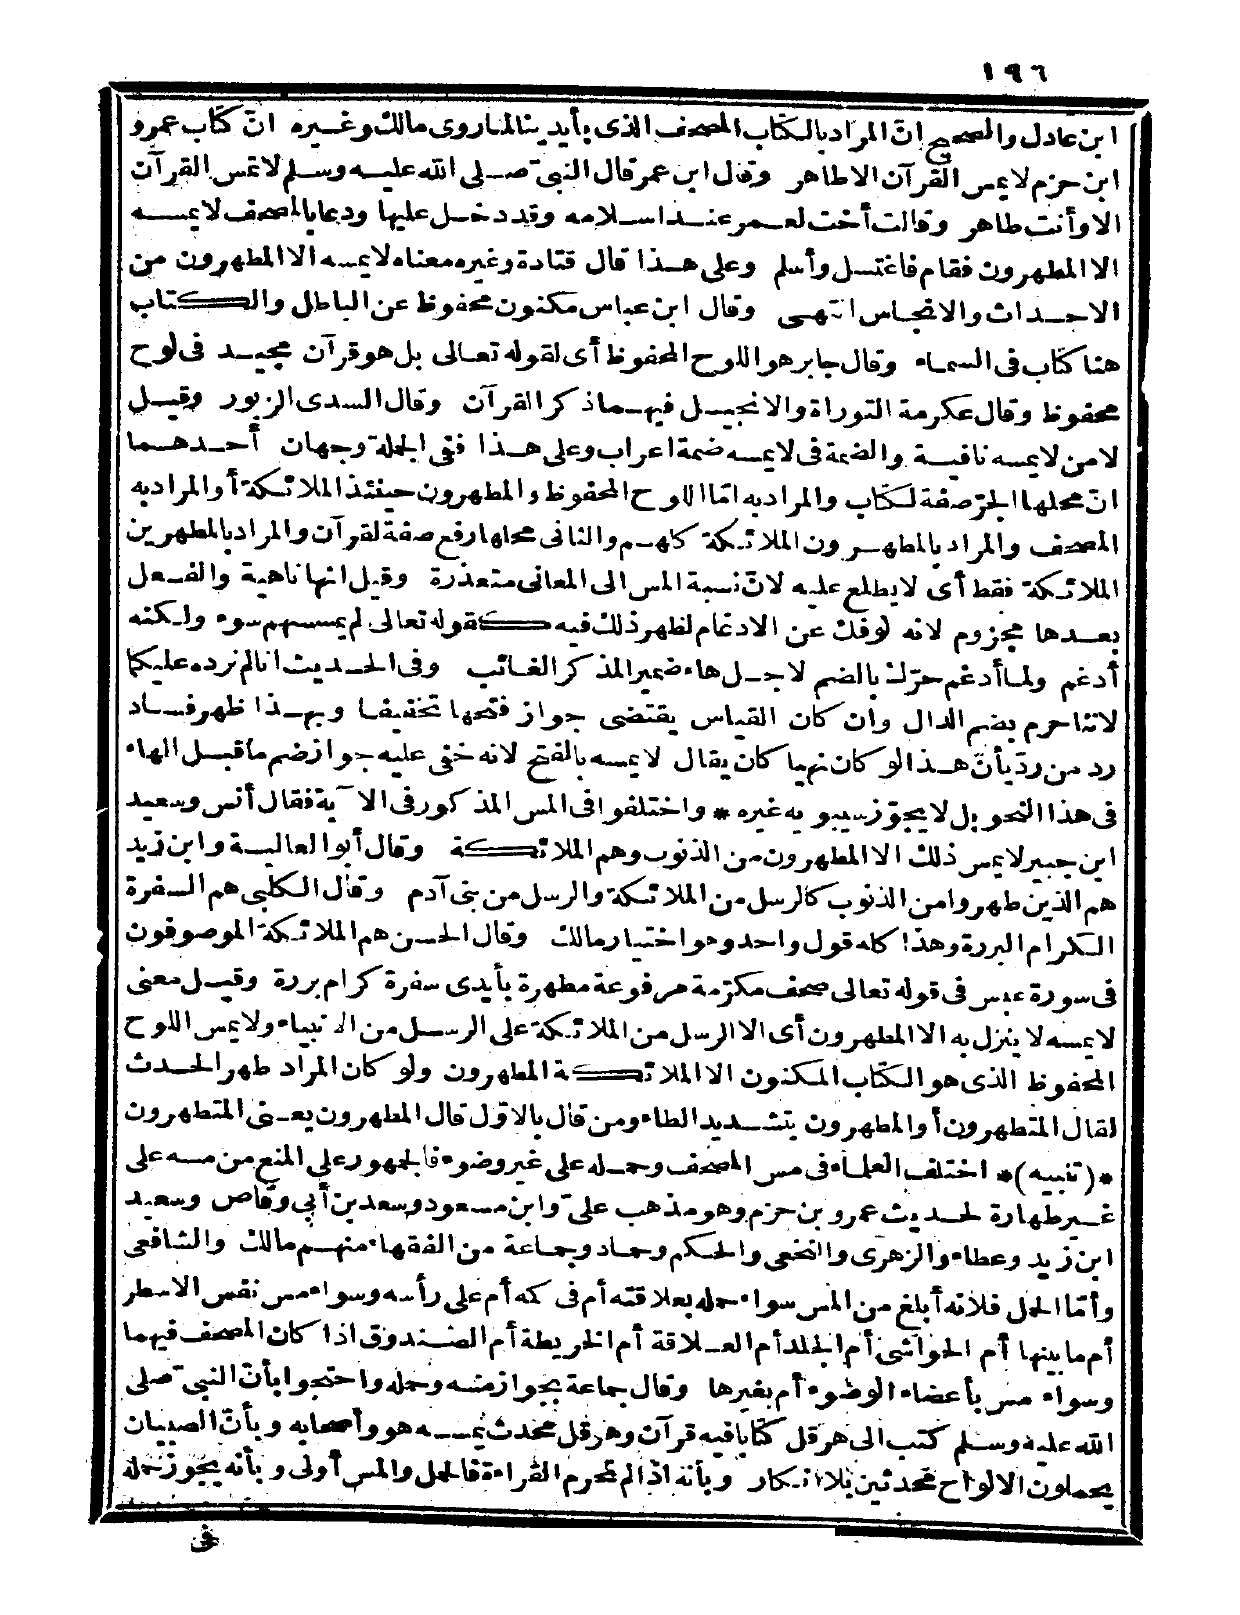 ١٩٦
ابن عادل والصحيح انّ المراد بالكتاب المصحف الذى بأيدينا لما روى مالك وغيره انّ كتاب عمرو
ابن حزم لا يمس القرآن الا طاهر وقال ابن عمر قال النبىّ صلى الله عليه وسلم لا تمس القرآن
الا وأنت طاهر وقالت أخت لعمر عند اسلامه وقد دخل عليها ودعا بالمصحف لا يمسه
الا المطهرون فقام فاغتسل وأسلم وعلى هذا قال قتادة وغيره معناه لا يمسه الا المطهرون من
الاحداث والانجاس انتهى وقال ابن عباس مكنون محفوظ عن الباطل والكتاب
هنا كتاب فى السماء وقال جابر هو اللوح المحفوظ أى لقوله تعالى بل هو قرآن مجيد فى لوح
محفوظ وقال عكرمة التوراة والانجيل فيهما ذكر القرآن وقال السدى الزبور وقيل
لا من لا يمسه نافية والضمة فى لا يمسه ضمة اعراب وعلى هذا ففى الجملة وجهان أحدهما
انّ محلها الجرّ صفة لكتاب والمراد به امّا اللوح المحفوظ والمطهرون حينئذ الملائكة أو المراد به
المصحف والمراد بالمطهرون الملائكة كلهم والثانى محلها رفع صفة لقرآن والمراد بالمطهرين
الملائكة فقط أى لا يطلع عليه لانّ نسبة المس الى المعانى متعذرة وقيل انها ناهية والفعل
بعدها مجزوم لانه لو فك عن الادغام لظهر ذلك فيه كقوله تعالى لم يمسسهم سوء ولكنه
أدغم ولما أدغم حرّك بالضم لاجل هاء ضمير المذكر الغائب وفى الحديث انا لم نرده عليكما
لاننا حرم بضم الدال وان كان القياس يقتضى جواز فتحها تخفيفا وبهذا ظهر فساد
رد من ردّ بأنّ هذا لو كان نهيا كان يقال لا يمسه بالفتح لانه خفى عليه جواز ضم ما قبل الهاء
فى هذا النحو بل لا يجوّز سيبويه غيره * واختلفوا فى المس المذكور فى الآية فقال أنس وسعيد
ابن جبير لا يمس ذلك الا المطهرون من الذنوب وهم الملائكة وقال أبو العالية وابن زيد
هم الذين طهروا من الذنوب كالرسل من الملائكة والرسل من بنى آدم وقال الكلبى هم السفرة
الكرام البررة وهذا كله قول واحد وهو اختيار مالك وقال الحسن هم الملائكة الموصوفون
فى سورة عبس فى قوله تعالى صحف مكرّمة مرفوعة مطهرة بأيدى سفرة كرام بررة وقيل معنى
لا يمسه لا ينزل به الا المطهرون أى الا الرسل من الملائكة على الرسل من الانبياء ولا يمس اللوح
المحفوظ الذى هو الكتاب المكنون الا الملائكة المطهرون ولو كان المراد طهر الحدث
لقال المتطهرون أو المطهرون بتشديد الطاء ومن قال بالاوّل قال المطهرون يعنى المتطهرون
* (تنبيه) * اختلف العلماء فى مس المصحف وحمله على غير وضوء فالجمهور على المنع من مسه على
غير طهارة لحديث عمرو بن حزم وهو مذهب علىّ وابن مسعود وسعد بن أبى وقاص وسعيد
ابن زيد وعطاء والزهرى والنخعى والحكم وحماد وجماعة من الفقهاء منهم مالك والشافعى
وأمّا الحمل فلانه أبلغ من المس سواء حمله بعلاقته أم فى كمه أم على رأسه وسواء مس نفس الاسطر
أم ما بينها أم الحواشى أم الجلد أم العلاقة أم الخريطة أم الصندوق اذا كان المصحف فيهما
وسواء مس بأعضاء الوضوء أم بغيرها وقال جماعة بجواز مسه وحمله واحتجوا بأنّ النبىّ صلى
الله عليه وسلم كتب الى هرقل كتابا فيه قرآن وهرقل محدث يمسه هو وأصحابه وبأنّ الصبيان
يحملون الالواح محدثين بلا انكار وبأنه اذا لم تحرم القراءة فالحمل والمس أولى وبأنه يجوز حمله
فى